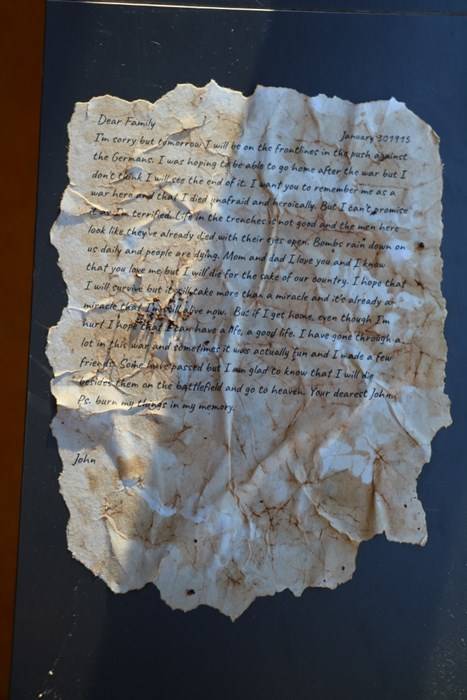 Dear Family
January 30 1915
I'm sorry but tomorrow I will be on ths frontlines in the push against
the Germans. I was hoping to be able to go home after the war but I
don't think I will see the end of it. I want you to remember me as a
war hero and that I died unafraid and heroically. But I can't promise
it as I'm terrified. Life in the trenches is not good and the men here
look like they've already died with their eyes open. Bombs rain down on
us daily and people are dying. Mom and dad I love you and I know
that you love me but I will die for the sake of our country. I hope that
I will survive but it will take more than a miracle and it's already a
miracle that I'm still alive now. But if I get home, even though I'm
hurt I hope that I can have a life, a good life. I have gone through a
lot in this war and sometimes it was actually fun and I made a few
friends. Some have passed but I am glad to know that I will die
besides them on the battlefield and go to heaven. Your dearest John
Ps. burn my things in my memory.
John